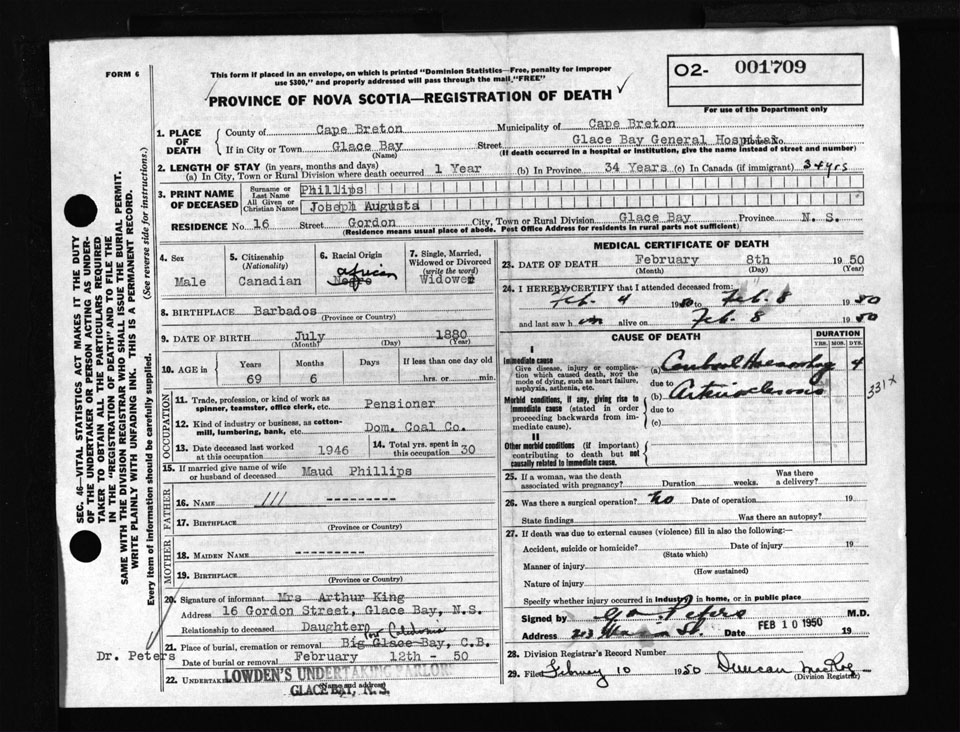 FORM 6
This form if placed in an envelope, on which is printed "Dominion Statistics—Free, penalty for improper
use $300," and properly addressed will pass through the mail, "FREE"
PROVINCE OF NOVA SCOTIA—REGISTRATION OF DEATH
O2- 001709
For use of the Department only
1. PLACE OF DEATH
County of Cape Breton Municipality of Cape Breton
If in City or Town Glace Bay Street Glace Bay General Hospital House No.
(Name) (If death occurred in a hospital or institution, give the name instead of street and number)
2. LENGTH OF STAY (in years, months and days)
(a) In City, Town or Rural Division where death occurred 1 Year (b) In Province 34 Years (c) In Canada (if immigrant) 34 yrs
3. PRINT NAME OF DECEASED
Surname or Last Name Phillips
All Given or Christian Names Joseph Augusta
RESIDENCE No. 16 Street Gordon City, Town or Rural Division Glace Bay Province N. S.
(Residence means usual place of abode. Post Office Address for residents in rural parts not sufficient)
4. Sex Male
5. Citizenship (Nationality) Canadian
6. Racial Origin African Negro
7. Single, Married, Widowed or Divorced (write the word) Widower
8. BIRTHPLACE Barbados
(Province or Country)
9. DATE OF BIRTH July 1880
(Month) (Day) (Year)
10. AGE in Years Months Days If less than one day old
69 6 hrs. or min.
OCCUPATION
11. Trade, profession, or kind of work as spinner, teamster, office clerk, etc. Pensioner
12. Kind of industry or business, as cotton-mill, lumbering, bank, etc. Dom. Coal Co.
13. Date deceased last worked at this occupation 1946
14. Total yrs. spent in this occupation 30
15. If married give name of wife or husband of deceased Maud Phillips
FATHER
16. NAME /// ----------
17. BIRTHPLACE
(Province or Country)
MOTHER
18. MAIDEN NAME ----------
19. BIRTHPLACE
(Province or Country)
20. Signature of informant Mrs Arthur King
Address 16 Gordon Street, Glace Bay, N.S.
Relationship to deceased Daughter
Port Caledonia
21. Place of burial, cremation or removal Big Glace Bay, C.B.
Date of burial or removal February 12th - 50
22. Undertaker LOWDEN'S UNDERTAKING PARLOR
(Name and address)
GLACE BAY, N. S.
Dr. Peters
MEDICAL CERTIFICATE OF DEATH
23. DATE OF DEATH February 8th 1950
(Month) (Day) (Year)
24. I HEREBY CERTIFY that I attended deceased from:
Feb. 4 1950 to Feb. 8 1950
and last saw him alive on Feb. 8 1950
CAUSE OF DEATH DURATION
YRS. MOS. DYS.
I
Immediate cause
Give disease, injury or complication which caused death, not the mode of dying, such as heart failure, asphyxia, asthenia, etc.
(a) Cerebral Haemorrhage 4
due to
Morbid conditions, if any, giving rise to immediate cause (stated in order proceeding backwards from immediate cause).
(b) Arteriosclerosis
due to
(c)
331 x
II
Other morbid conditions (if important) contributing to death but not causally related to immediate cause.
25. If a woman, was the death associated with pregnancy? Duration weeks. Was there a delivery?
26. Was there a surgical operation? No Date of operation 19
State findings Was there an autopsy?
27. If death was due to external causes (violence) fill in also the following:—
Accident, suicide or homicide? Date of injury 19
(State which)
Manner of injury
(How sustained)
Nature of injury
Specify whether injury occurred in industry, in home, or in public place
Signed by Peters M.D.
Address Main St. Date FEB 10 1950 19
28. Division Registrar's Record Number
29. Filed February 10 1950 Duncan McRae
(Division Registrar)
SEC. 46—VITAL STATISTICS ACT MAKES IT THE DUTY
OF THE UNDERTAKER OR PERSON ACTING AS UNDER-
TAKER TO OBTAIN ALL THE PARTICULARS REQUIRED
IN THE "REGISTRATION OF DEATH" AND TO FILE THE
SAME WITH THE DIVISION REGISTRAR WHO SHALL ISSUE THE BURIAL PERMIT.
WRITE PLAINLY WITH UNFADING INK. THIS IS A PERMANENT RECORD.
Every item of information should be carefully supplied. (See reverse side for instructions.)